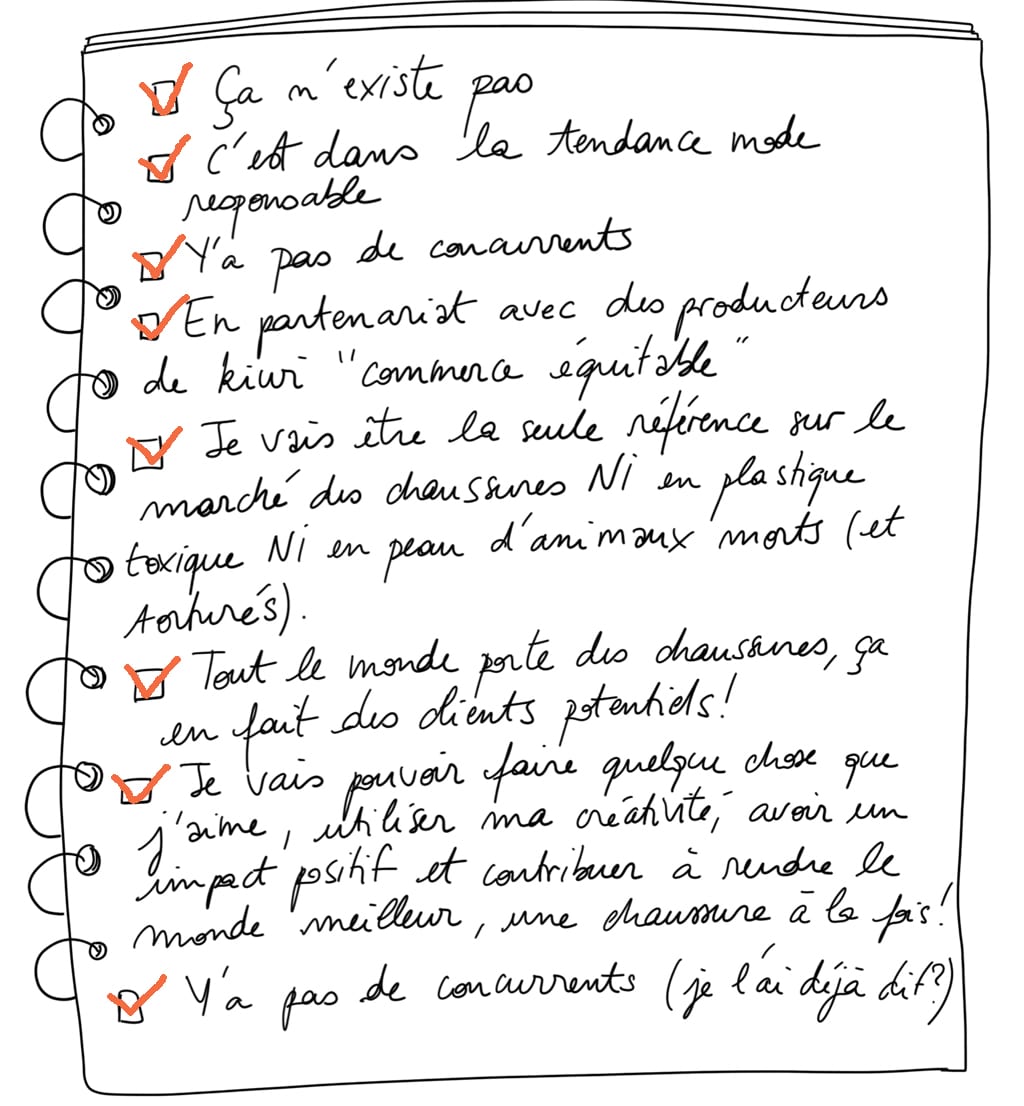 Ça n'existe pas
C'est dans la tendance mode
responsable
Y'a pas de concurrents
En partenariat avec des producteurs
de kiwi "commerce équitable"
Je vais être la seule référence sur le
marché des chaussures Ni en plastique
toxique Ni en peau d'animaux morts (et
torturés).
Tout le monde porte des chaussures, ça
en fait des clients potentiels!
Je vais pouvoir faire quelque chose que
j'aime, utiliser ma créativité, avoir un
impact positif et contribuer à rendre le
monde meilleur, une chaussure à la fois!
Y'a pas de concurrents (je l'ai déjà dit?)